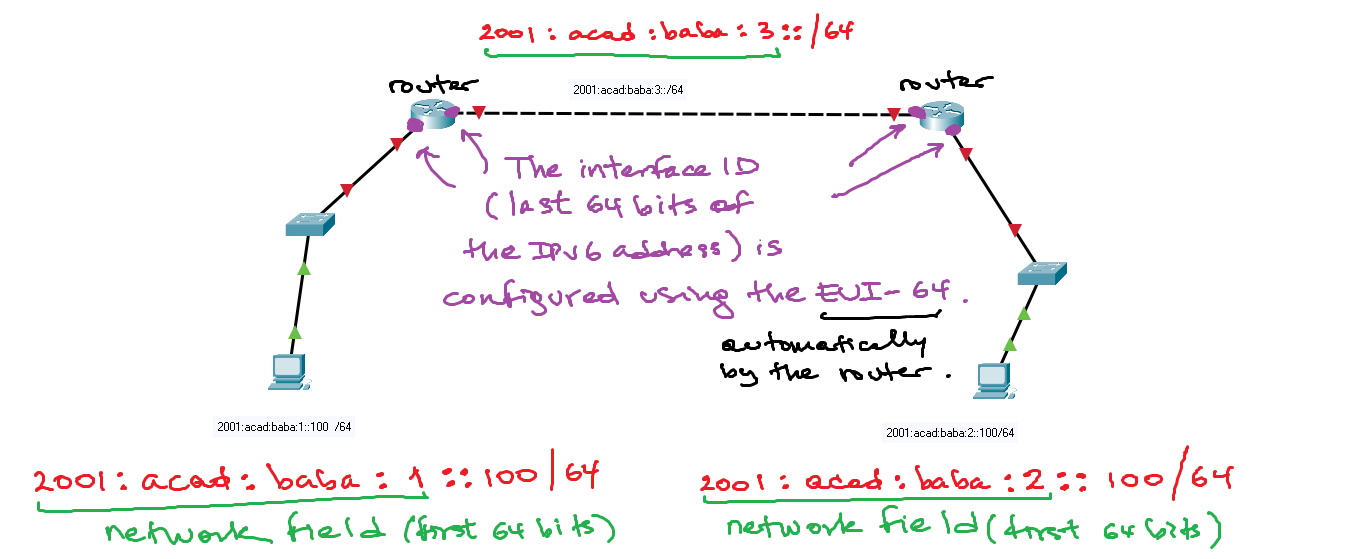 2001:acad:baba:3::/64
router
router
2001:acad:baba:3::/64
The interface ID
(last 64 bits of
the IPv6 address) is
configured using the EUI-64.
automatically
by the router.
2001:acad:baba:1::100 /64
2001:acad:baba:2::100/64
2001:acad:baba:1::100/64
2001:acad:baba:2::100/64
network field (first 64 bits)
network field (first 64 bits)